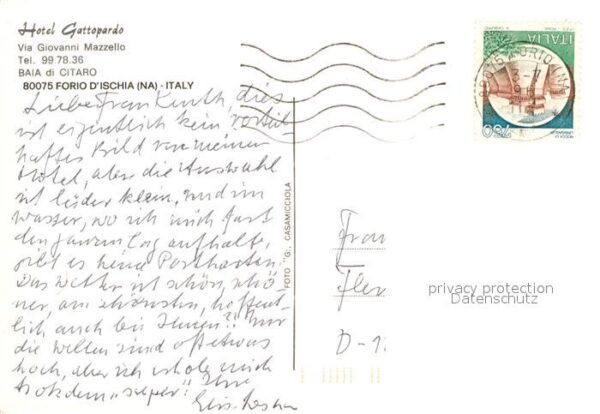 Hotel Gattopardo
Via Giovanni Mazzello
Tel. 99.78.36
BAIA di CITARO
80075 FORIO D'ISCHIA (NA) - ITALY
Liebe Frau Knuth, dies
ist eigentlich kein vorteil-
haftes Bild von meinem
Hotel, aber die Auswahl
ist leider klein, und im
Wasser, wo ich mich fast
den ganzen Tag aufhalte,
gibt es keine Postkarten.
Das Wetter ist schön, schö-
ner, am schönsten, hoffent-
lich auch bei Ihnen?! Nur
die Wellen sind oft etwas
hoch, aber ich erhole mich
trotzdem "super"! Ihre
FOTO "G". CASAMICCIOLA
ITALIA
750
80075 FORIO (NA)
Frau
D-1
privacy protection
Datenschutz